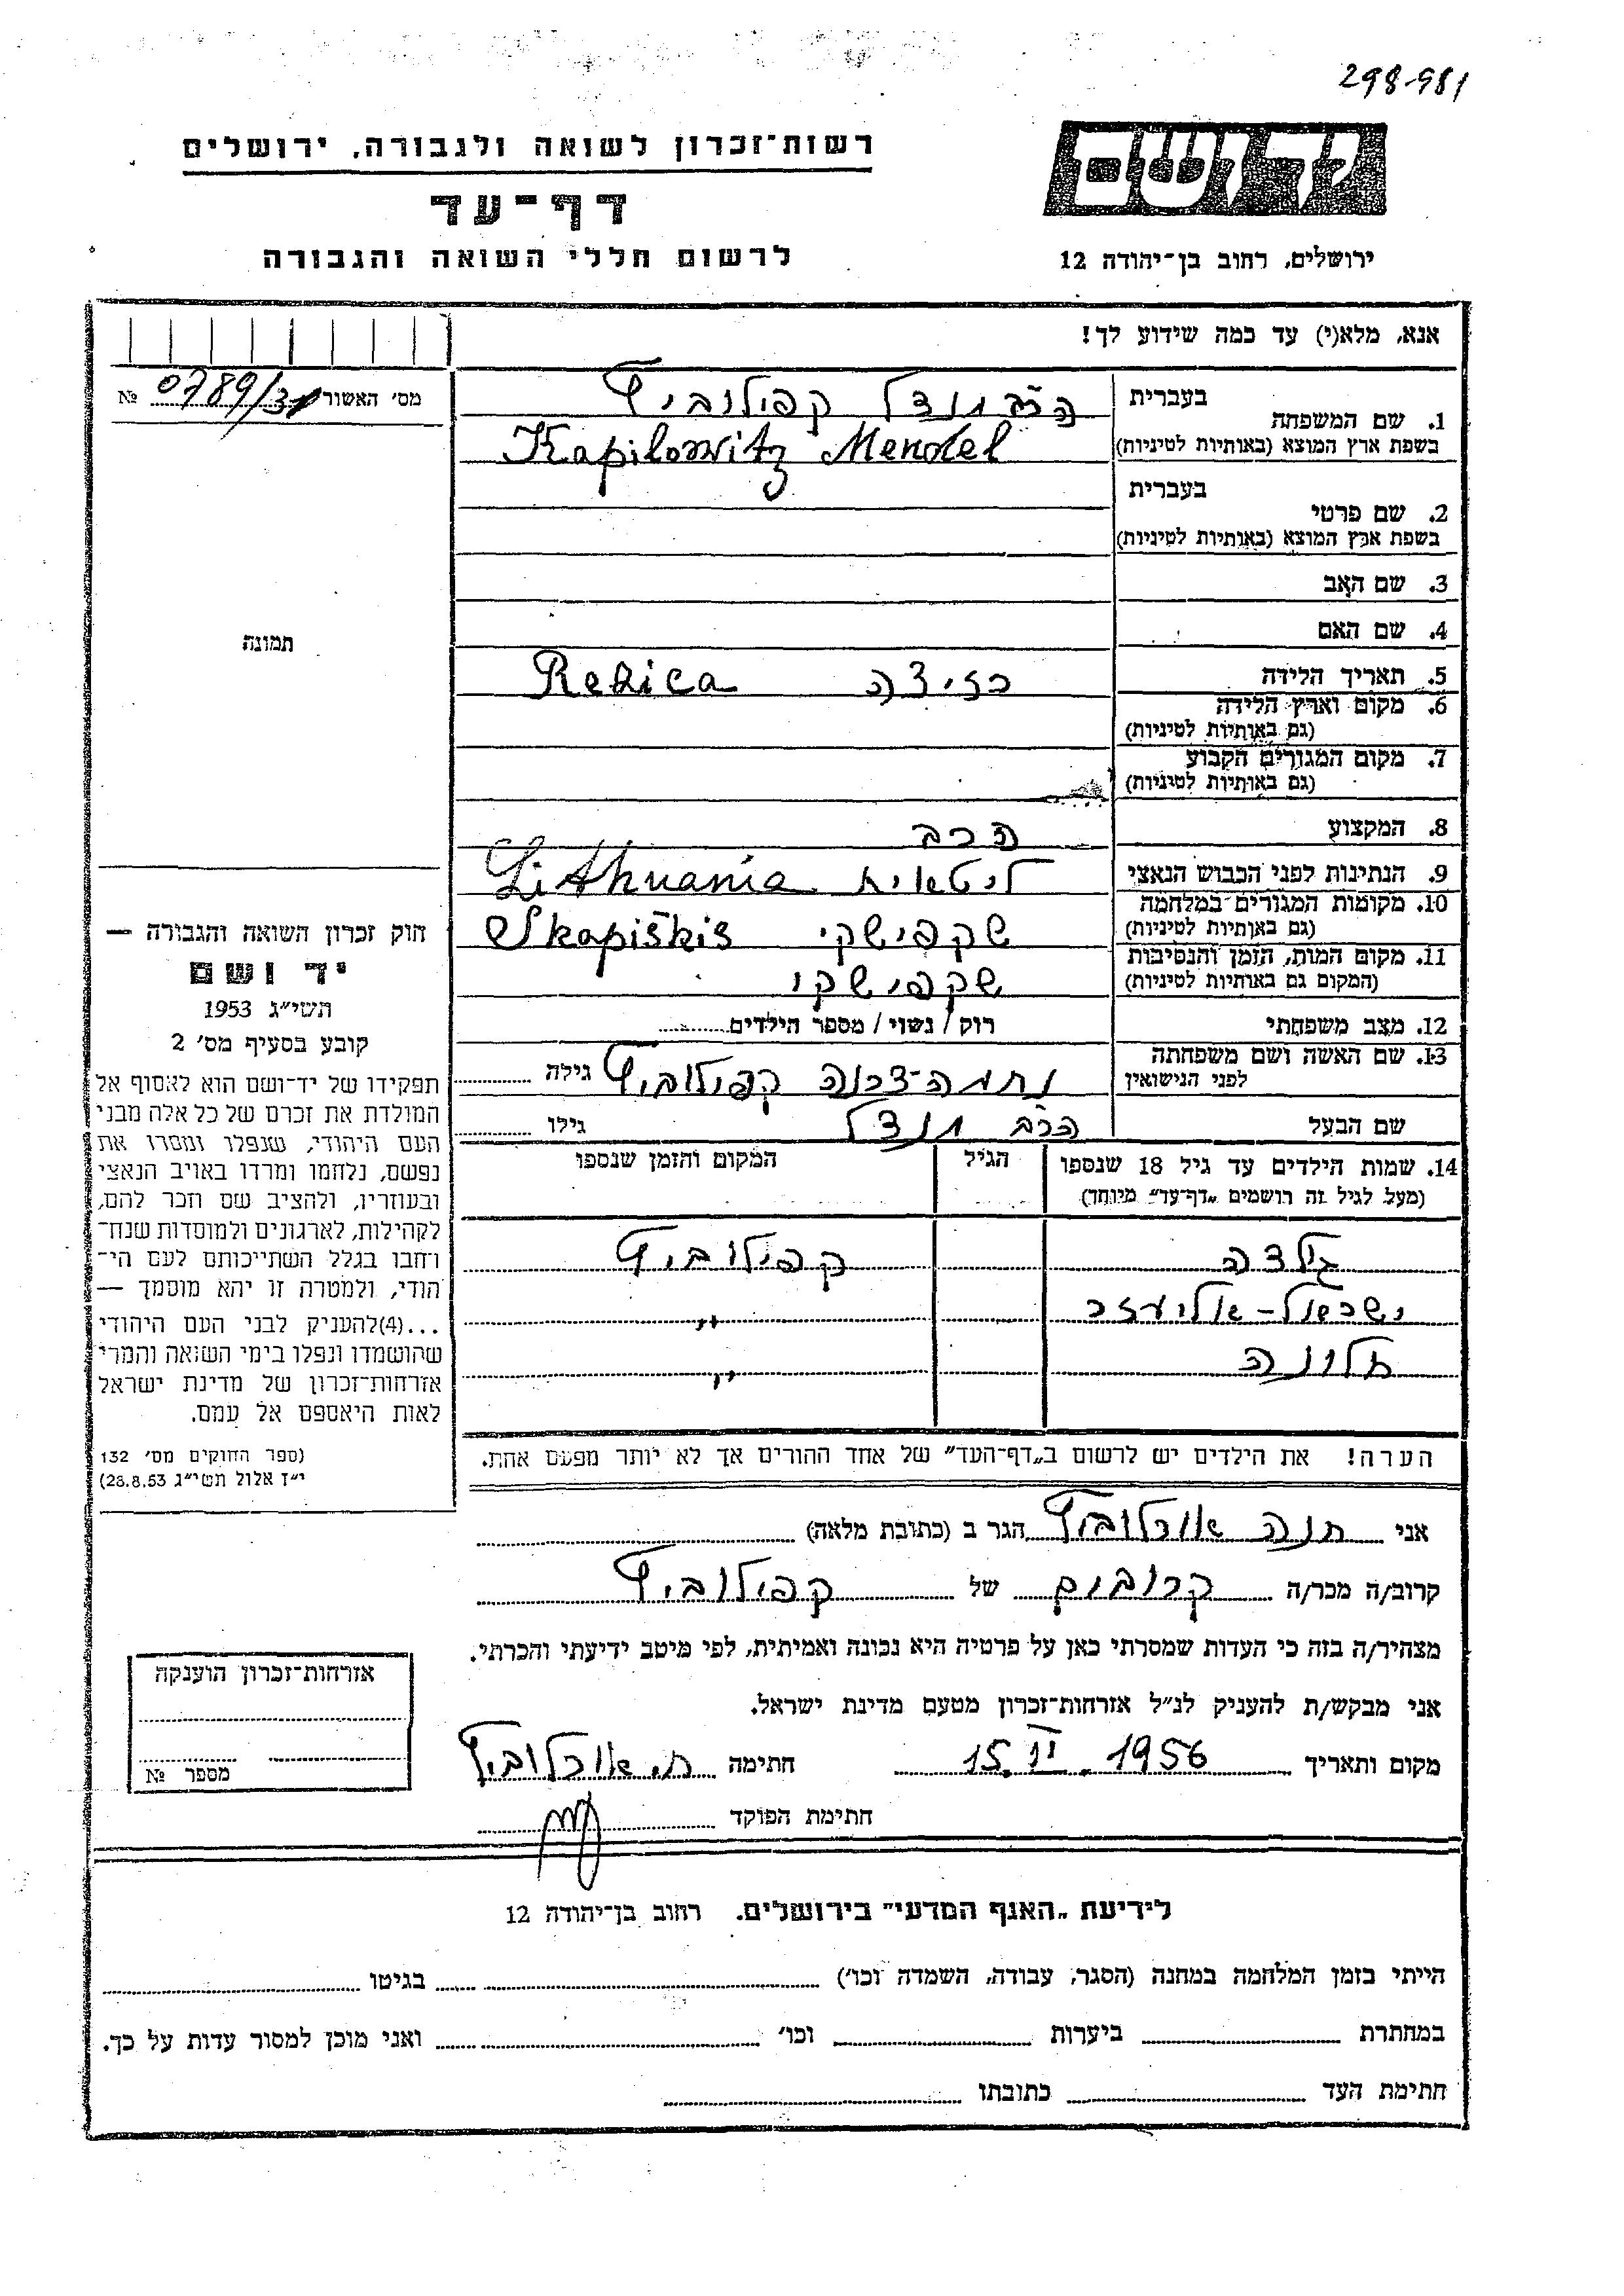 298-981
רשות־זכרון לשואה ולגבורה, ירושלים
דף־עד
לרשום חללי השואה והגבורה
יד ושם
ירושלים, רחוב בן־יהודה 12
אנא, מלא(י) עד כמה שידוע לך!
מס׳ האשור 0789/31 №
1. שם המשפחה בעברית הרב מנדל קפילוביץ
בשפת ארץ המוצא (באותיות לטיניות) Kapilowitz Mendel
2. שם פרטי בעברית
בשפת ארץ המוצא (באותיות לטיניות)
3. שם האב
4. שם האם
תמונה
5. תאריך הלידה רזיצה Rezica
6. מקום וארץ הלידה
(גם באותיות לטיניות)
7. מקום המגורים הקבוע
(גם באותיות לטיניות)
8. המקצוע הרב
9. הנתינות לפני הכבוש הנאצי ליטאית Lithuania
10. מקומות המגורים במלחמה
(גם באותיות לטיניות) שקפישקי Skapiškis
11. מקום המות, הזמן והנסיבות
(המקום גם באותיות לטיניות) שקפישקי
12. מצב משפחתי רוק / נשוי / מספר הילדים
13. שם האשה ושם משפחתה
לפני הנישואין נחמה־צרנה קפילוביץ גילה
שם הבעל הרב מנדל גילו
14. שמות הילדים עד גיל 18 שנספו הגיל המקום והזמן שנספו
(מעל לגיל זה רושמים „דף־עד״ מיוחד)
גולדה קפילוביץ
ישראל־אליעזר "
חוה "
הערה! את הילדים יש לרשום ב„דף־העד״ של אחד ההורים אך לא יותר מפעם אחת.
חוק זכרון השואה והגבורה —
יד ושם
תשי״ג 1953
קובע בסעיף מס׳ 2
תפקידו של יד־ושם הוא לאסוף אל
המולדת את זכרם של כל אלה מבני
העם היהודי, שנפלו ומסרו את
נפשם, נלחמו ומרדו באויב הנאצי
ובעוזריו, ולהציב שם וזכר להם,
לקהילות, לארגונים ולמוסדות שנח־
רחבו בגלל השתייכותם לעם הי־
הודי, ולמטרה זו יהא מוסמך —
...(4)להעניק לבני העם היהודי
שהושמדו ונפלו בימי השואה והמרי
אזרחות־זכרון של מדינת ישראל
לאות היאספם אל עמם.
(ספר החוקים מס׳ 132
י״ז אלול תשי״ג 28.8.53)
אני חנה אורלוביץ הגר ב (כתובת מלאה)
קרוב/ה מכר/ה קרובים של קפילוביץ
מצהיר/ה בזה כי העדות שמסרתי כאן על פרטיה היא נכונה ואמיתית, לפי מיטב ידיעתי והכרתי.
אני מבקש/ת להעניק לנ״ל אזרחות־זכרון מטעם מדינת ישראל.
מקום ותאריך 15.II.1956 חתימה ח. אורלוביץ
חתימת הפוקד
אזרחות־זכרון הוענקה
מספר №
לידיעת „האגף המדעי״ בירושלים. רחוב בן־יהודה 12
הייתי בזמן המלחמה במחנה (הסגר, עבודה, השמדה וכו׳) בגיטו
במחתרת ביערות וכו׳ ואני מוכן למסור עדות על כך.
חתימת העד כתובתו